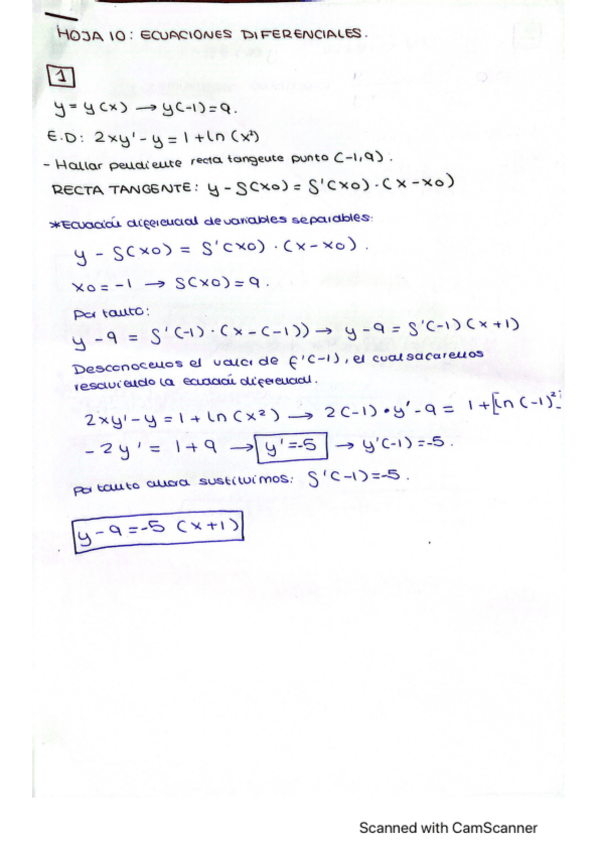 HOJA 10: ECUACIONES DIFERENCIALES.
1
y = y(x) → y(-1)=9.
E.D: 2xy' - y = 1 + ln(x²)
- Hallar pendiente recta tangente punto (-1,9).
RECTA TANGENTE: y - f(x0) = f'(x0) · (x - x0)
*Ecuación diferencial de variables separables:
y - f(x0) = f'(x0) · (x - x0).
x0 = -1 → f(x0) = 9.
Por tanto:
y - 9 = f'(-1) · (x - (-1)) → y - 9 = f'(-1)(x + 1)
Desconocemos el valor de f'(-1), el cual sacaremos
resolviendo la ecuación diferencial.
2xy' - y = 1 + ln(x²) → 2(-1) · y' - 9 = 1 + [ln(-1)²]
- 2y' = 1 + 9 → y' = -5 → y'(-1) = -5.
Por tanto ahora sustituimos: f'(-1) = -5.
y - 9 = -5 (x+1)
Scanned with CamScanner